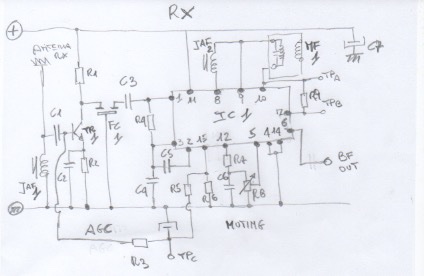 RX
+
ANTENNA
RX
R1
C3
JAF
2
MF
1
C7
TPA
R9
TPB
C1
TR1
FC
R4
1
11
8
9
10
IC 1
7
6
3
2
13
12
5
4
14
C5
R7
R8
BF
OUT
JAF
1
C2
R2
C4
R5
R6
C6
AGC
MUTING
R3
TPC